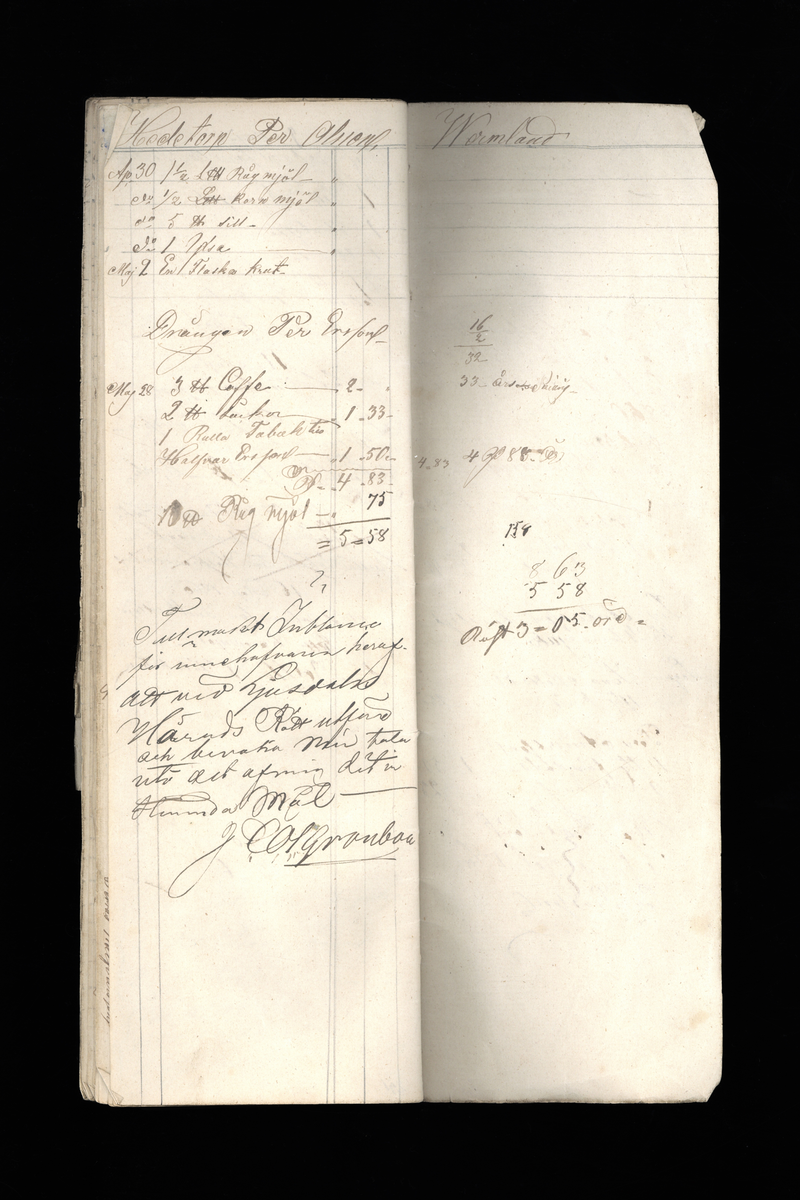 Hedetorp Per Olsson, Wermland
Ap 30 1 1/2 L℔ Råg mjöl
do 1/2 L℔ korn mjöl
do 5 ℔ Sill
do 1
Maj 2 En Flaska krut
Drängen Per Ersson
Maj 28 3 ℔ Caffe 2 - "
2 ℔ Socker 1 - 33
1 Rulla Tabak
Halfvar Ersson 1 - 50
4 - 83
10 ℔ Råg mjöl 75
= 5 = 58
Full makt In blanco
för innehafvaren heraf
att vid Ljusdals
Härads Rätt utföra
och bevaka min talan
uti det af mig
Stemnda Mål
16
2
32
33
4-83 4 88
158
8 63
5 58
Räst 3 = 05 öre =